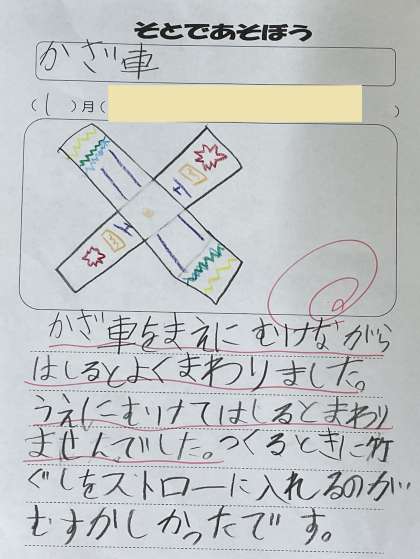 そとであそぼう
かざ車
(1)月( )
かざ車をまえにむけながら
はしるとよくまわりました。
うえにむけてはしるとまわり
ませんでした。つくるときに竹
ぐしをストローに入れるのが
むずかしかったです。